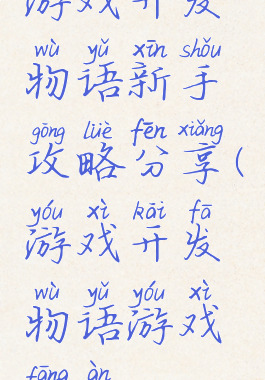 游戏开发
wù yǔ xīn shǒu
物语新手
gōng lüè fēn xiǎng
攻略分享(
yóu xì kāi fā
游戏开发
wù yǔ yóu xì
物语游戏
fāng àn